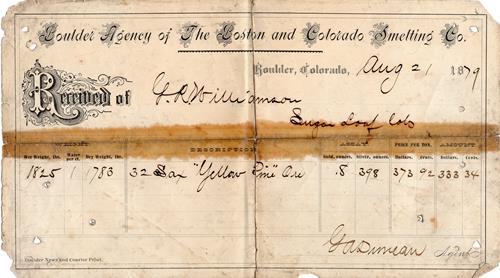 Boulder Agency of The Boston and Colorado Smelting Co.
Boulder, Colorado, Aug 21 1879
Received of G. R. Williamson
Sugar Loaf Colo
WEIGHT. DESCRIPTION. ASSAY. PRICE PER TON. AMOUNT.
Net Weight, lbs. Water per ct. Dry Weight, lbs. Gold, ounces. Silver, ounces. Dollars. Cents. Dollars. Cents.
1825 1 1783 32 Sax "Yellow Pine" Ore .8 398 373 92 333 34
Agent
Boulder News and Courier Print.